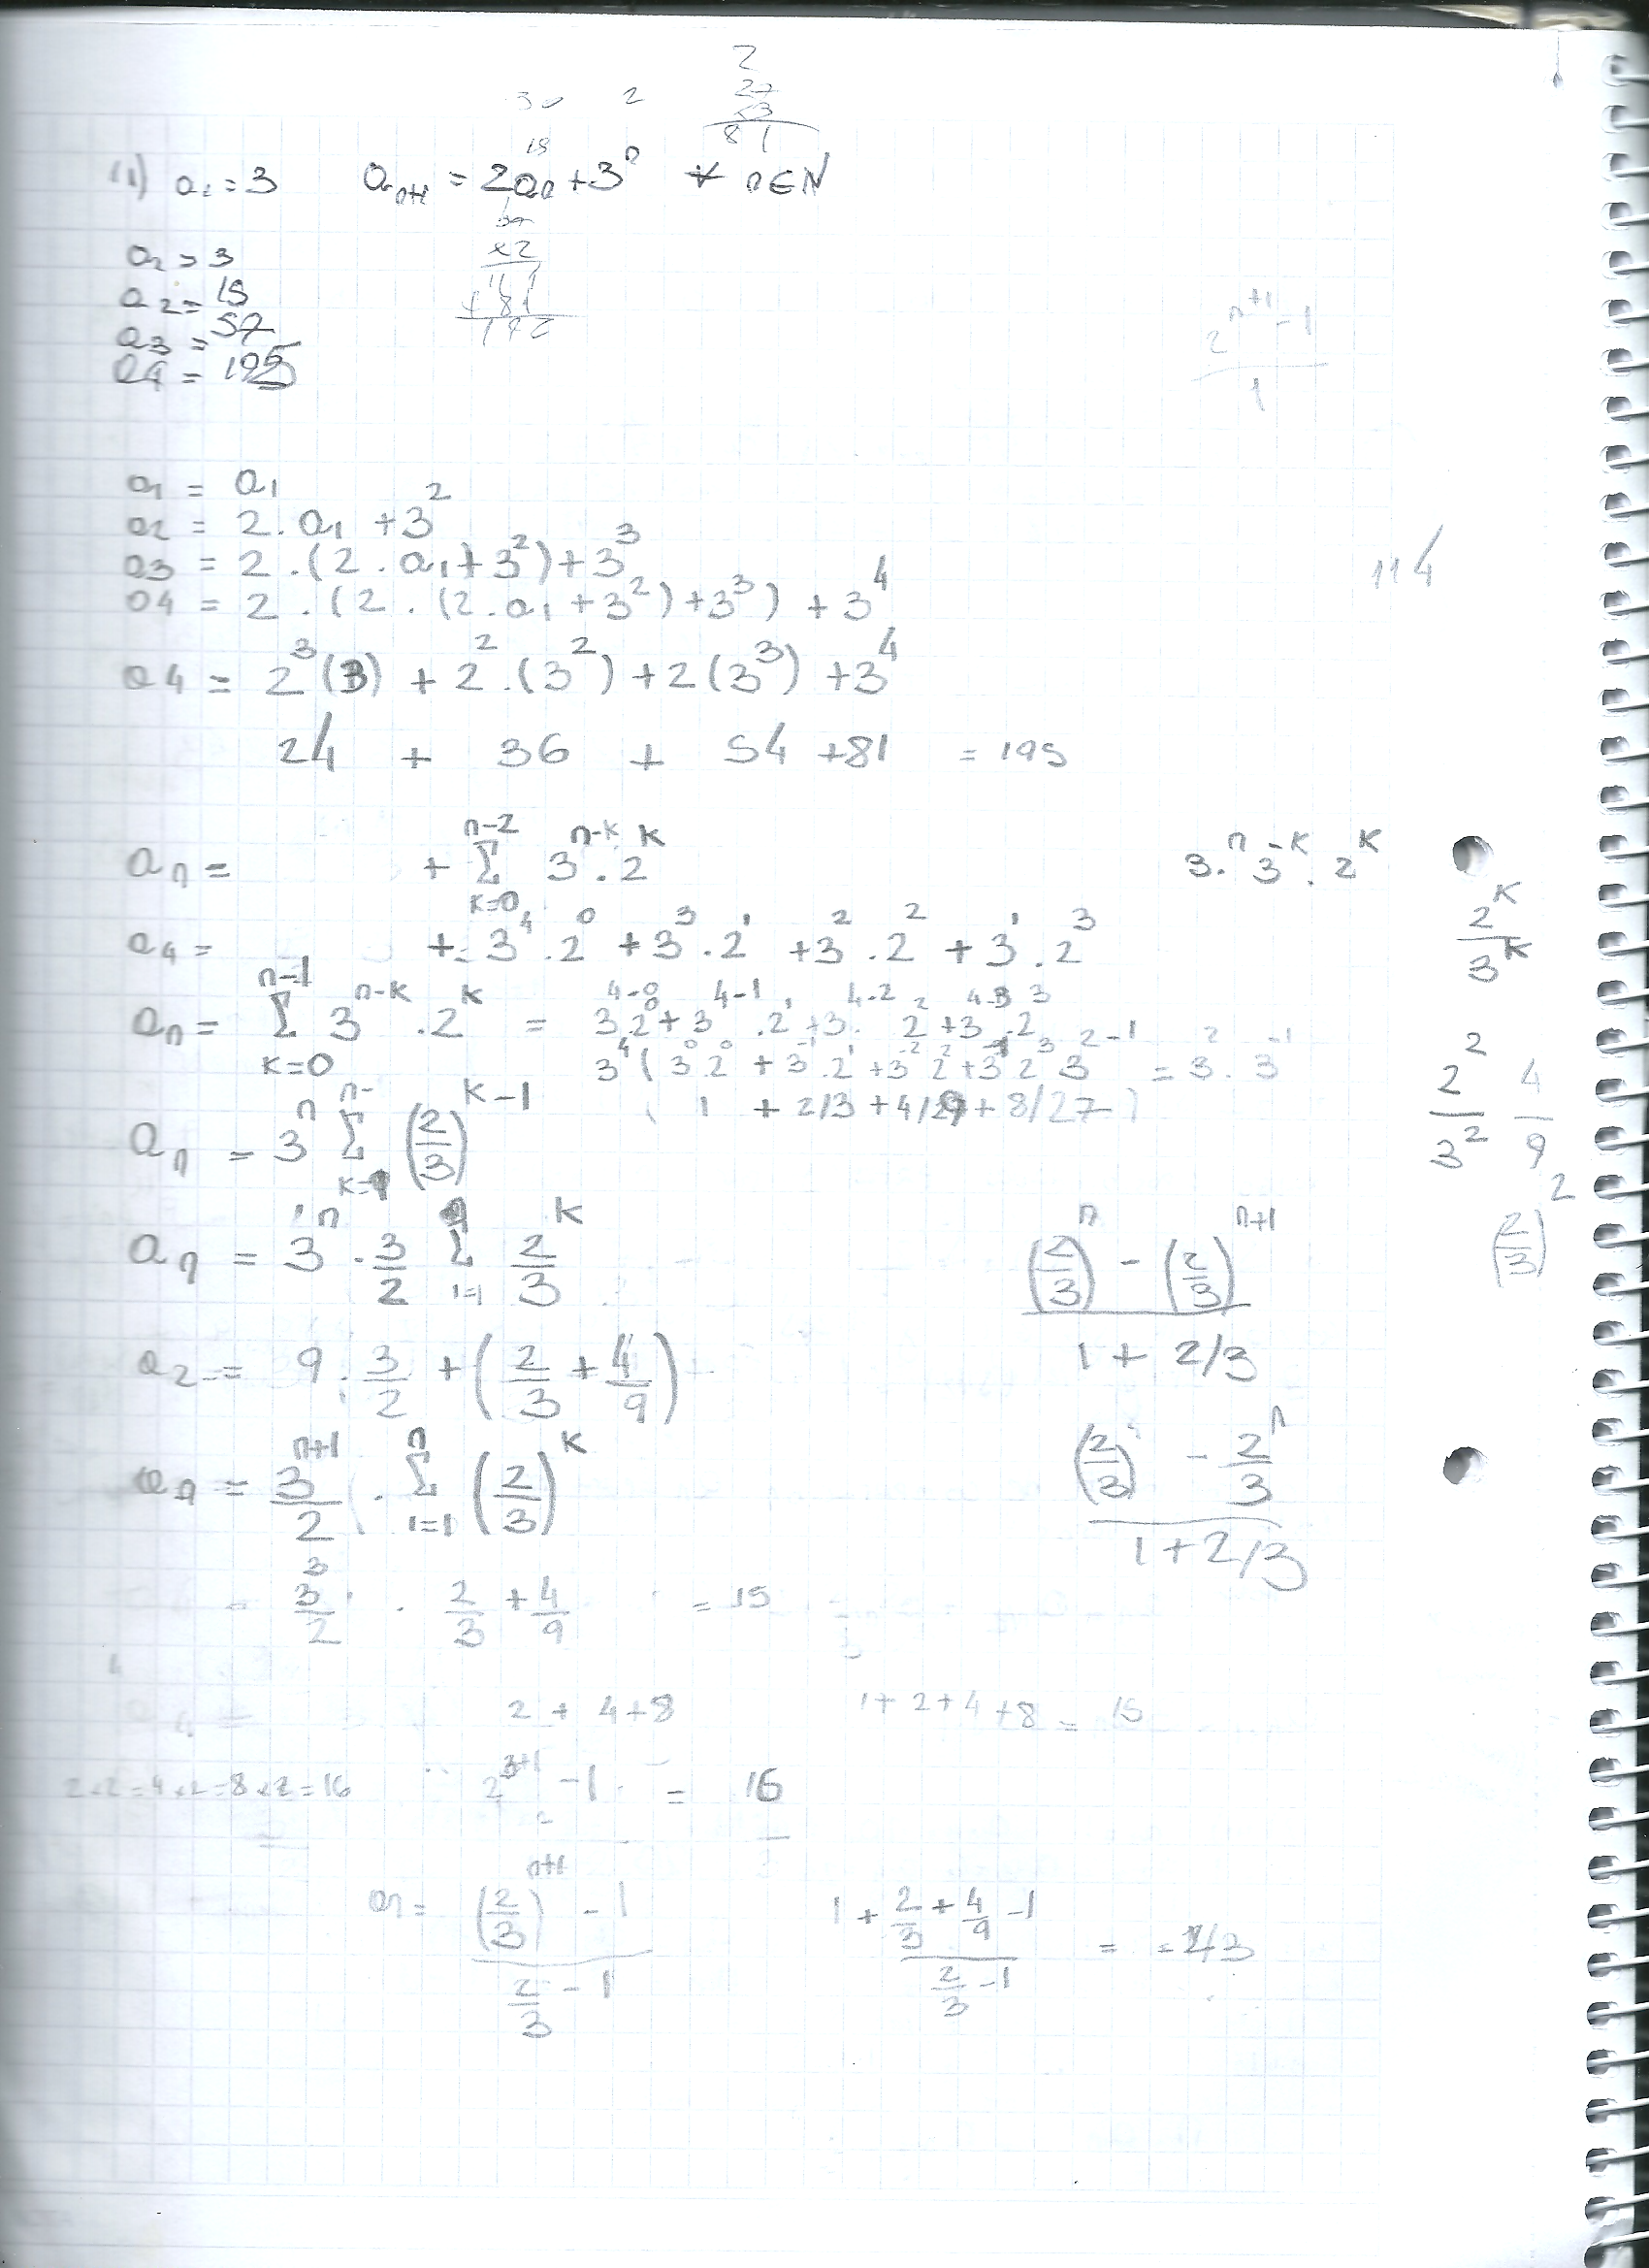 2
30 2 27
×3
81
11) a₁ = 3 aₙ₊₁ = 2aₙ + 3ⁿ ∀ n∈N
×2
a₁ = 3
a₂ = 15
a₃ = 57
a₄ = 195
2ⁿ⁺¹ - 1
1
a₁ = a₁
a₂ = 2 . a₁ + 3²
a₃ = 2 . (2 . a₁ + 3²) + 3³
a₄ = 2 . (2 . (2 . a₁ + 3²) + 3³) + 3⁴
114
a₄ = 2³(3) + 2² . (3²) + 2(3³) + 3⁴
24 + 36 + 54 + 81 = 195
aₙ = + Σ (k=0, n-2) 3ⁿ⁻ᵏ . 2ᵏ 3 .ⁿ 3⁻ᵏ . 2ᵏ
2ᵏ / 3ᵏ
a₄ = + 3⁴ . 2⁰ + 3³ . 2¹ + 3² . 2² + 3¹ . 2³
aₙ = Σ (k=0, n-1) 3ⁿ⁻ᵏ . 2ᵏ = 3⁴⁻⁰ 2⁰ + 3⁴⁻¹ . 2¹ + 3⁴⁻² . 2² + 3⁴⁻³ . 2³
3⁴ ( 3⁰ 2⁰ + 3⁻¹ . 2¹ + 3⁻² 2² + 3⁻³ 2³ 3²⁻¹ = 3² . 3⁻¹
( 1 + 2/3 + 4/9 + 8/27 )
2² / 3² 4/9
(2/3)²
aₙ = 3ⁿ Σ (2/3)ᵏ⁻¹
aₙ = 3ⁿ . 3/2 Σ (i=1) 2/3 ᵏ
(2/3)ⁿ - (2/3)ⁿ⁺¹
1 + 2/3
a₂ = 9 . 3/2 + (2/3 + 4/9)
aₙ = 3ⁿ⁺¹/2 . Σ (i=1, n) (2/3)ᵏ
(2/3) - 2/3 ⁿ
1 + 2/3
= 3³/2 . 2/3 + 4/9 = 15
2 + 4 + 8 1 + 2 + 4 + 8 = 15
2×2=4×2=8×2=16 2³⁺¹ - 1 = 16
aₙ = (2/3)ⁿ⁺¹ - 1 1 + 2/3 + 4/9 - 1
2/3 - 1 2/3 - 1 =